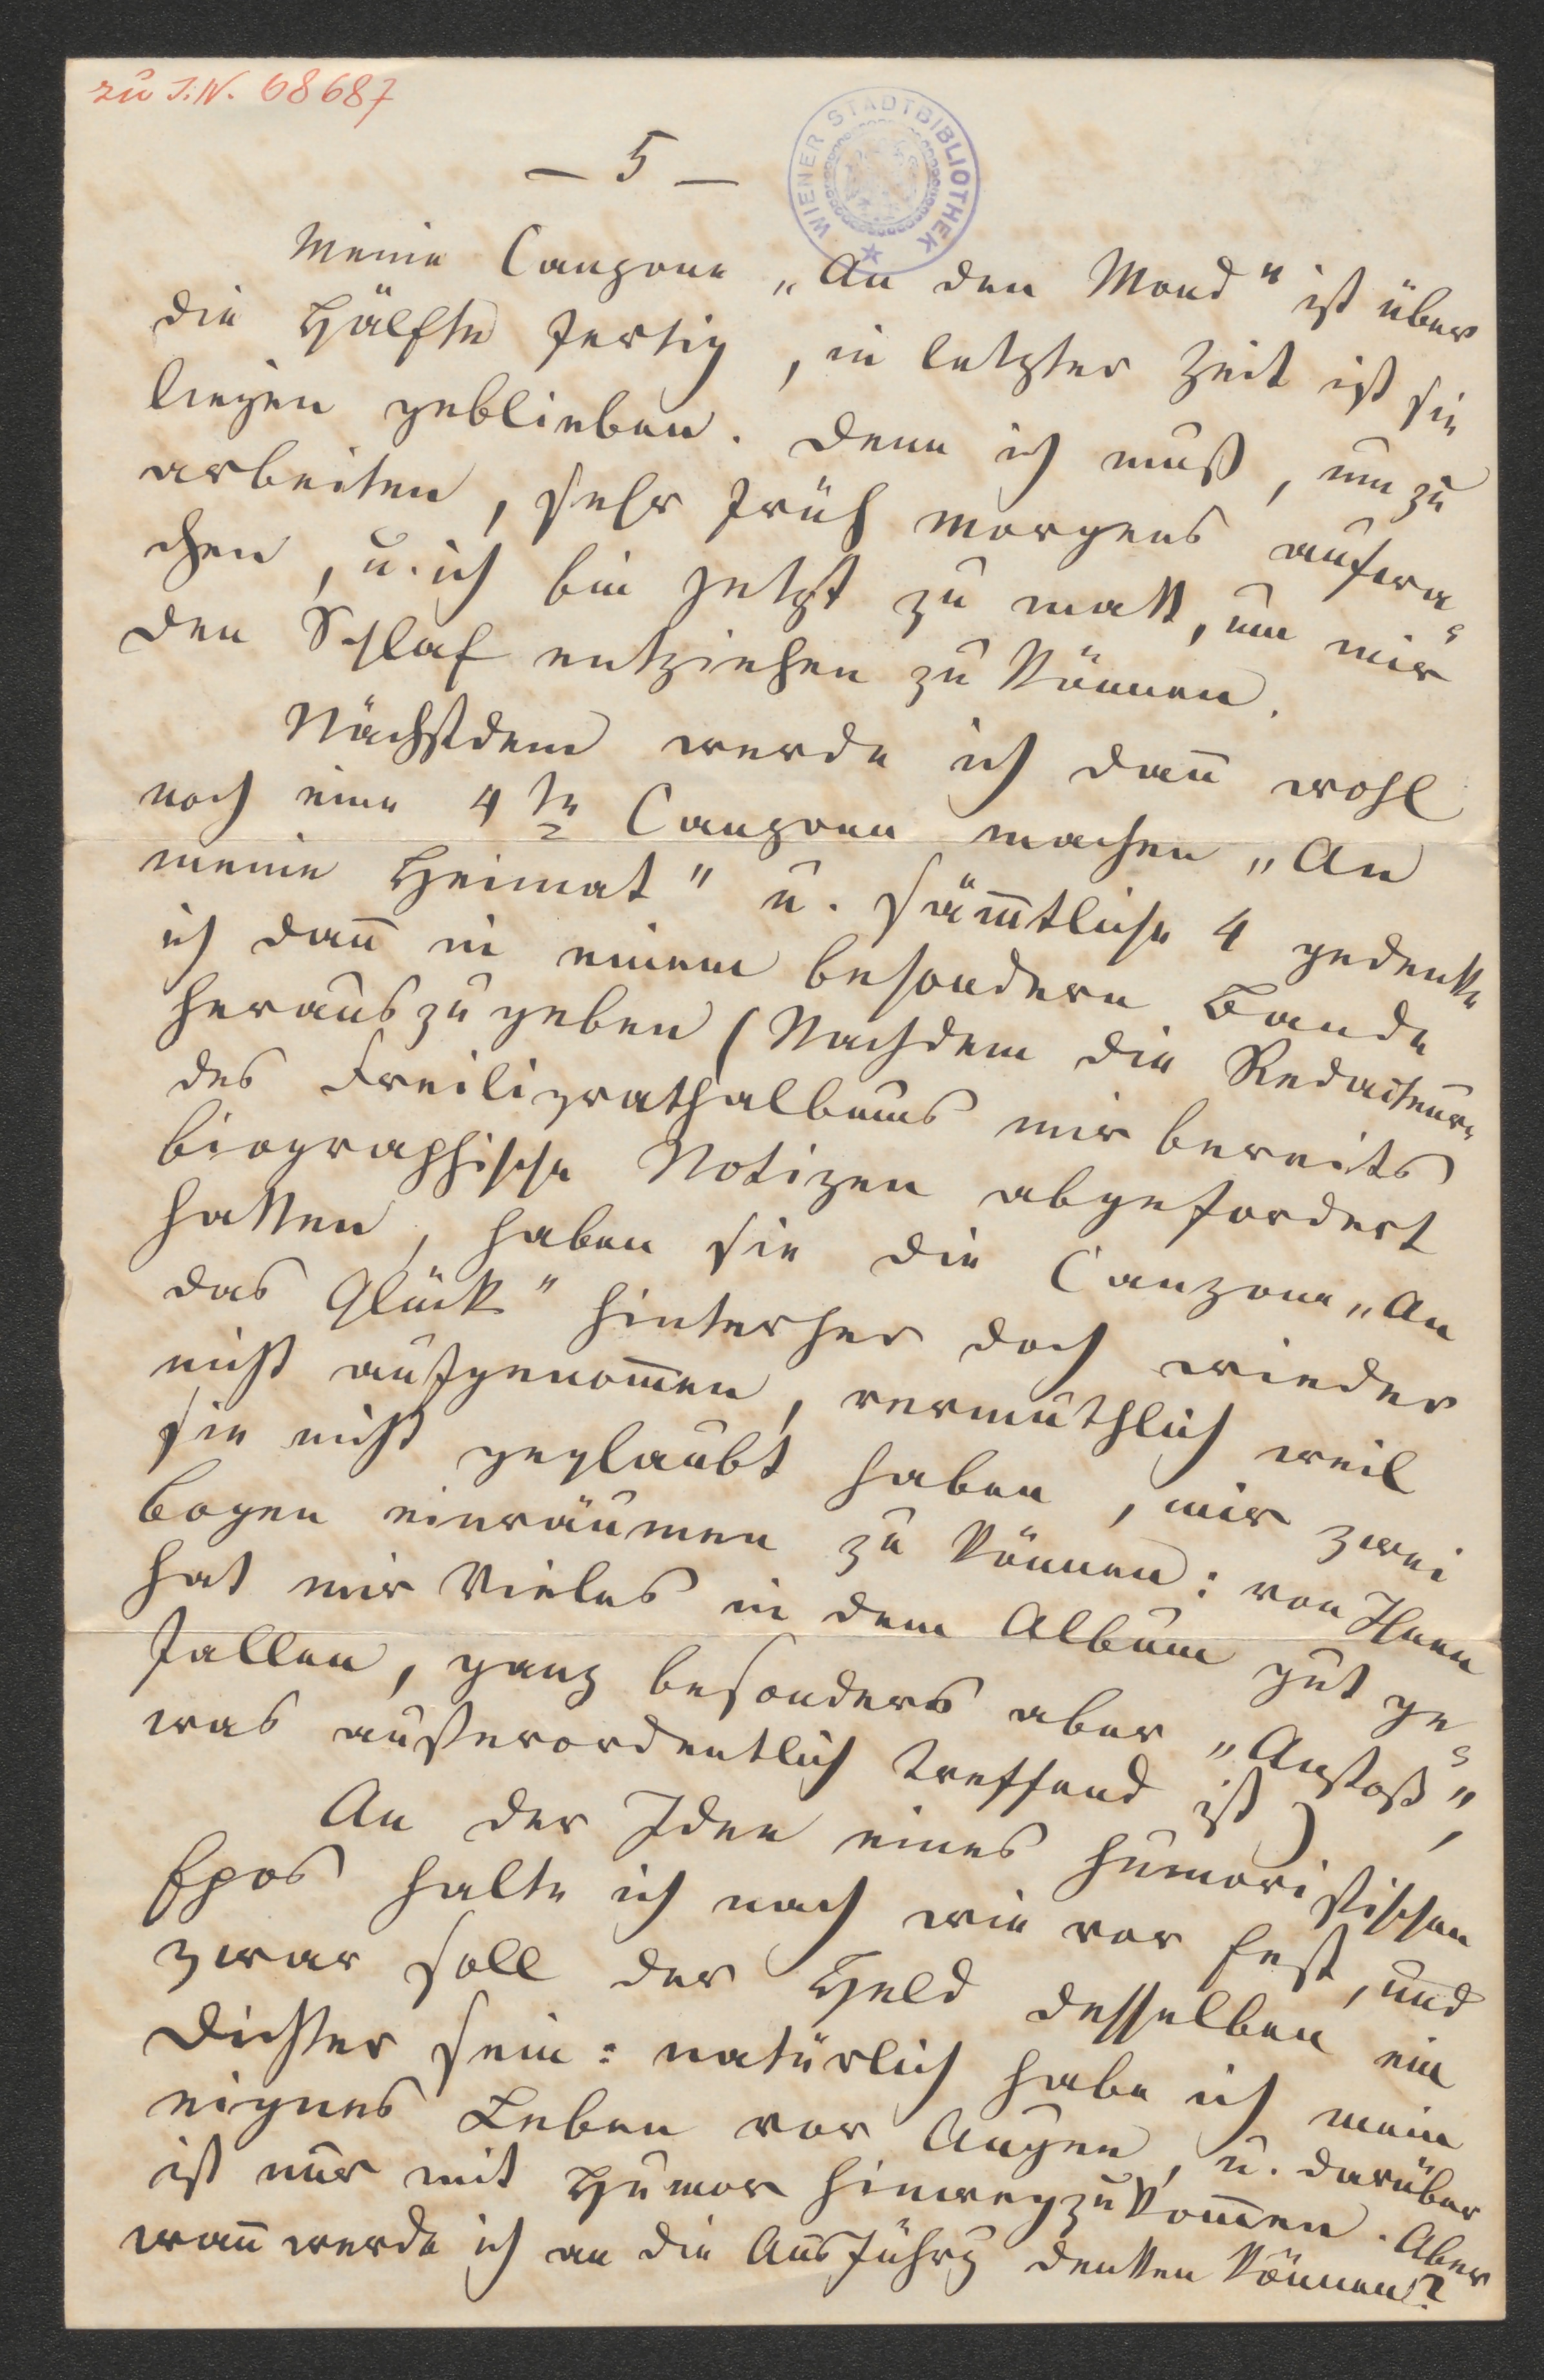 zu I.N. 68687
WIENER STADTBIBLIOTHEK
– 5 –
Meine Canzone „An den Mond" ist über
die Hälfte fertig, in letzter Zeit ist sie
liegen geblieben. Denn ich muß, um zu
arbeiten, sehr früh morgens aufwa-
chen, u. ich bin jetzt zu matt, um mir
den Schlaf entziehen zu können.
Nächstdem werde ich dañ wohl
noch eine 4te Canzone machen „An
meine Heimat" u. säm̅tliche 4 gedenke
ich dañ in einem besondern Bande
herauszugeben (Nachdem die Redacteure
des Freiligrathalbums mir bereits
biographische Notizen abgefordert
hatten, haben sie die Canzone „An
das Glück" hinterher doch wieder
nicht aufgenom̅en, vermuthlich weil
sie nicht geglaubt haben, mir zwei
Bogen einräumen zu können: von Ihnen
hat mir Vieles in dem Album gut ge-
fallen, ganz besonders aber „Anstoß",
was außerordentlich treffend ist)
An der Idee eines humoristischen
Epos halte ich nach wie vor fest, und
zwar soll der Held desselben ein
Dichter sein: natürlich habe ich mein
eignes Leben vor Augen, u. darüber
ist nur mit Humor hinwegzukom̅en. Aber
wañ werde ich an die Ausführg denken können?